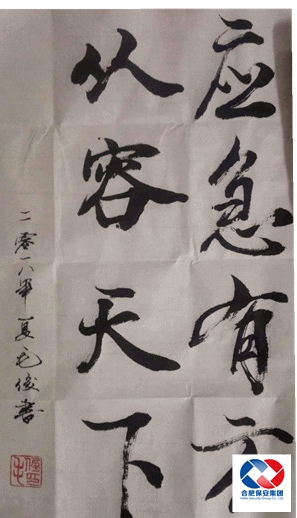 应急有方
从容天下
二零一八年夏毛俊书
合肥保安集团
Hefei Security Group Co., Ltd